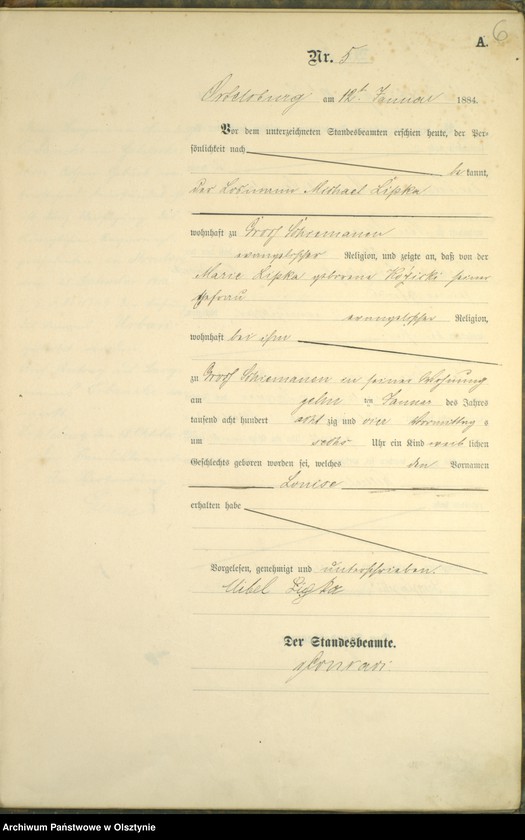 6
A.
Nr. 5
Ortelsburg am 12t Januar 1884.
Vor dem unterzeichneten Standesbeamten erschien heute, der Per-
sönlichkeit nach
be kannt,
der Losmann Michael Lipka
wohnhaft zu Groß Schiemanen
evangelischer Religion, und zeigte an, daß von der
Marie Lipka geborene seiner
Ehefrau
evangelischer Religion,
wohnhaft bei ihm
zu Groß Schiemanen in seiner Wohnung
am zehn ten Januar des Jahres
tausend acht hundert acht zig und vier Vormittag s
um sechs Uhr ein Kind weib lichen
Geschlechts geboren worden sei, welches den Vornamen
Louise
erhalten habe
Vorgelesen, genehmigt und unterschrieben.
Der Standesbeamte.
Archiwum Państwowe w Olsztynie